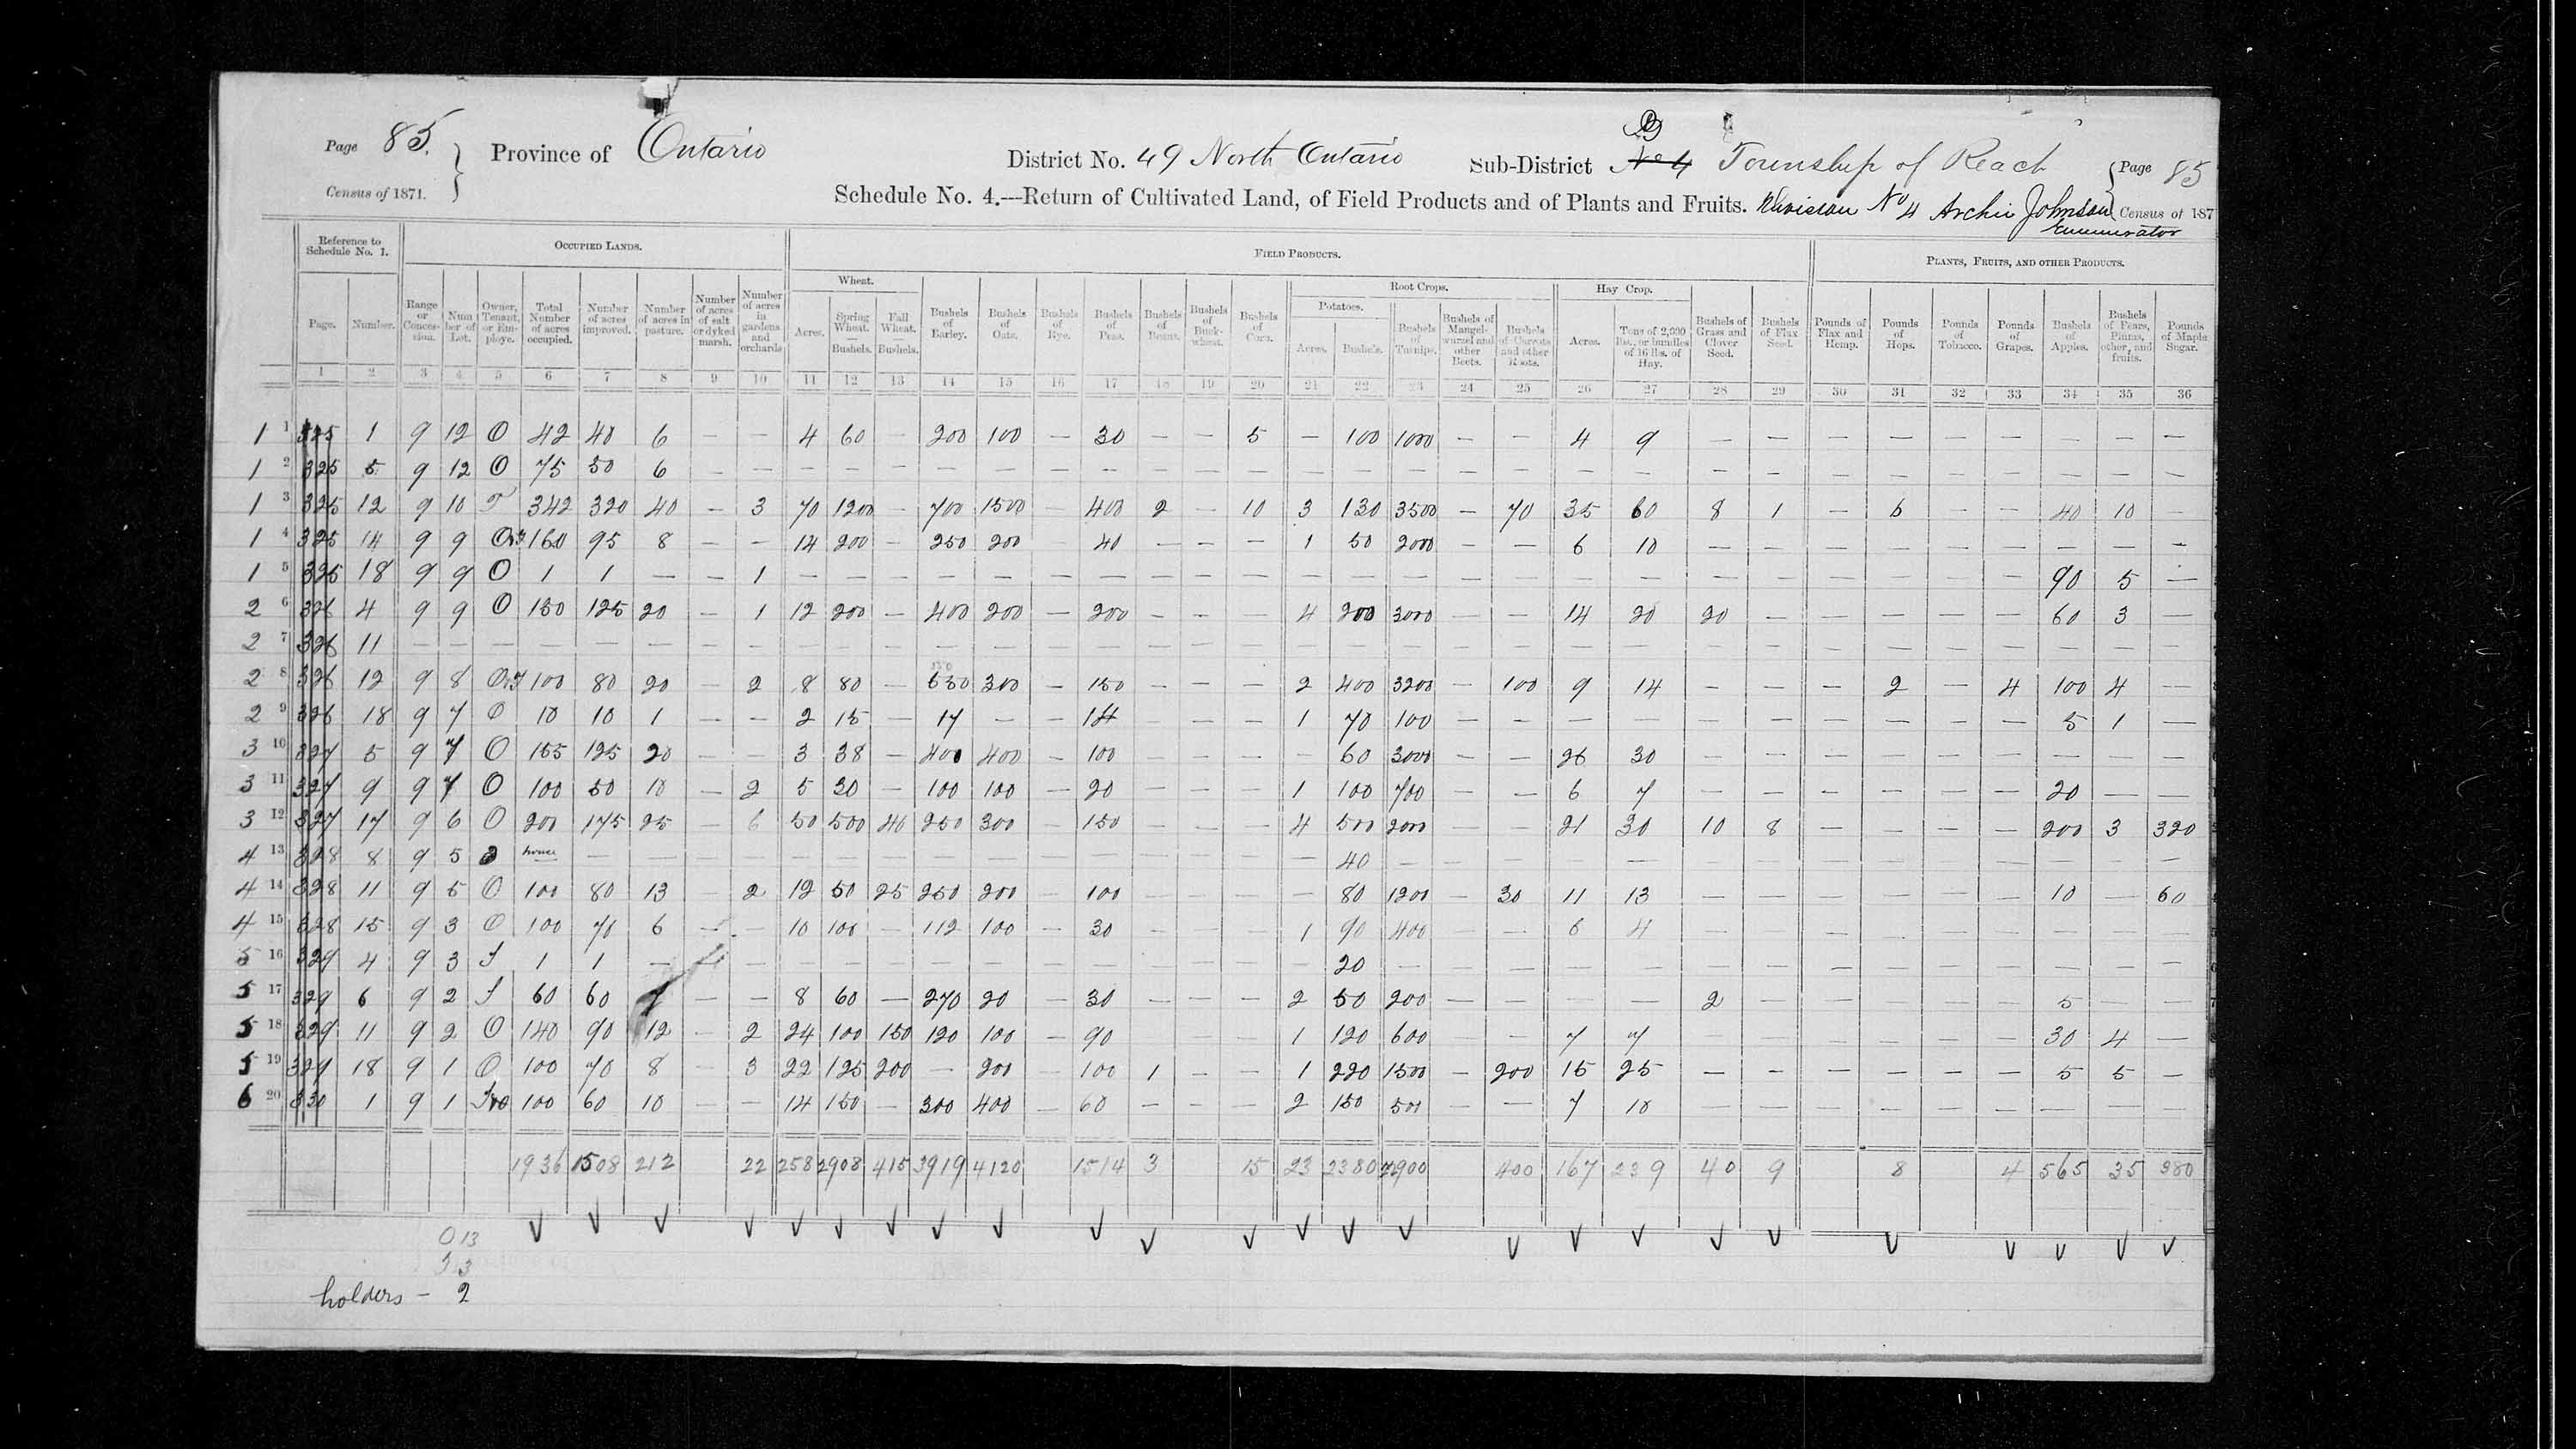 Page 85. } Province of Ontario District No. 49 North Ontario Sub-District No 4 Township of Reach { Page 85
Census of 1871. Schedule No. 4.—Return of Cultivated Land, of Field Products and of Plants and Fruits. Division No 4 Archie Johnson Census of 187
Enumerator
Reference to Schedule No. 1. OCCUPIED LANDS. FIELD PRODUCTS. PLANTS, FRUITS, AND OTHER PRODUCTS.
Wheat. Root Crops. Hay Crop.
Potatoes.
Page. Number. Range or Concession. Number of Lot. Owner, Tenant, or Employe. Total Number of acres occupied. Number of acres improved. Number of acres in pasture. Number of acres of salt or dyked marsh. Number of acres in gardens and orchards Acres. Spring Wheat. — Bushels. Fall Wheat. — Bushels. Bushels of Barley. Bushels of Oats. Bushels of Rye. Bushels of Peas. Bushels of Beans. Bushels of Buckwheat. Bushels of Corn. Acres. Bushels. Bushels of Turnips. Bushels of Mangel-wurzel and other Beets. Bushels of Carrots and other Roots. Acres. Tons of 2,000 lbs., or bundles of 16 lbs. of Hay. Bushels of Grass and Clover Seed. Bushels of Flax Seed. Pounds of Flax and Hemp. Pounds of Hops. Pounds of Tobacco. Pounds of Grapes. Bushels of Apples. Bushels of Pears, Plums, other, and fruits. Pounds of Maple Sugar.
1 2 3 4 5 6 7 8 9 10 11 12 13 14 15 16 17 18 19 20 21 22 23 24 25 26 27 28 29 30 31 32 33 34 35 36
1 1 325 1 9 12 O 42 40 6 — — 4 60 — 200 100 — 30 — — 5 — 100 1000 — — 4 9 — — — — — — — — —
1 2 325 5 9 12 O 75 50 6 — — — — — — — — — — — — — — — — — — — — — — — — — — — —
1 3 325 12 9 10 T 342 320 40 — 3 70 1200 — 700 1500 — 400 2 — 10 3 130 3500 — 70 35 60 8 1 — 6 — — 40 10 —
1 4 325 14 9 9 O&T 160 95 8 — — 14 200 — 250 200 40 — — — 1 50 2000 — — 6 10 — — — — — — — — —
1 5 325 18 9 9 O 1 1 — — 1 — — — — — — — — — — — — — — — — — — — — — — — 90 5 —
2 6 326 4 9 9 O 150 125 20 — 1 12 200 — 400 200 — 200 — — — 4 200 3000 — — 14 20 20 — — — — — 60 3 —
2 7 326 11 — — — — — — — — — — — — — — — — — — — — — — — — — — — — — — — — — —
2 8 326 12 9 8 O&T 100 80 20 — 2 8 80 — 300 — 150 — — — 2 400 3200 — 100 9 14 — — — 2 — 4 100 4 —
2 9 326 18 9 7 O 10 10 1 — — 2 15 — 17 — — 14 — — — 1 70 100 — — — — — — — — — — 5 1 —
3 10 327 5 9 7 O 155 125 20 — — 3 38 — 400 400 — 100 — — — 60 3000 — — 26 30 — — — — — — — — —
3 11 327 9 9 7 O 100 50 10 — 2 5 30 — 100 100 — 20 — — — 1 100 700 — — 6 7 — — — — — — 20 — —
3 12 327 17 9 6 O 200 175 25 — 6 50 500 40 250 300 — 150 — — — 4 500 2000 — — 21 30 10 8 — — — — 200 3 320
4 13 328 8 9 5 house — — — — — — — — — — — — — — — 40 — — — — — — — — — — — — — —
4 14 328 11 9 5 O 100 80 13 — 2 12 50 25 250 200 — 100 — — — — 80 1200 — 30 11 13 — — — — — — 10 — 60
4 15 328 15 9 3 O 100 70 6 — — 10 100 — 112 100 — 30 — — — 1 90 400 — — 6 4 — — — — — — — — —
5 16 329 4 9 3 T 1 1 — — — — — — — — — — — — — — 20 — — — — — — — — — — — — — —
5 17 329 6 9 2 T 60 60 7 — — 8 60 — 270 20 — 30 — — — 2 50 200 — — — — 2 — — — — — 5 — —
5 18 329 11 9 2 O 140 90 12 — 2 24 100 150 120 100 — 90 — — — 1 120 600 — — 7 7 — — — — — — 30 4 —
5 19 329 18 9 1 O 100 70 8 — 3 22 125 200 — 200 — 100 1 — — 1 220 1500 — 200 15 25 — — — — — — 5 5 —
6 20 330 1 9 1 100 60 10 — — 14 150 — 300 400 — 60 — — — 2 150 500 — — 7 10 — — — — — — — — —
1936 1508 212 22 258 2908 415 3919 4120 1514 3 15 23 2380 22900 400 167 239 40 9 8 4 565 35 380
O 13
T 3
holders — 2